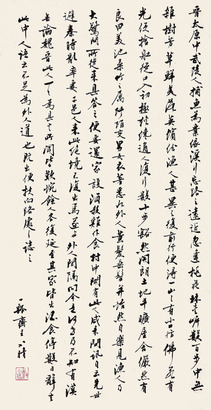 晉太原中武陵人捕魚為業緣溪行忘路之遠近忽逢桃花林夾岸數百步中無
雜樹芳草鮮美落英繽紛漁人甚異之復前行便得一山山有小口彷彿若有
光便捨船從口入初極狹纔通人復行數十步豁然開朗土地平曠屋舍儼然有
良田美池桑竹之屬男女衣著悉如外人黃髮垂髫並怡然自樂見漁人乃
大驚問所從來具答之便要還家設酒殺雞作食村中聞有此人咸來問訊自云先世
避秦時亂率妻子邑人來此絕境不復出焉遂與外人間隔問今是何世乃不知有漢
無論魏晉此人一一為具言所聞皆歎惋餘人各復延至其家皆出酒食停數日辭去
此中人語云不足為外人道也既出便扶向路處處誌之